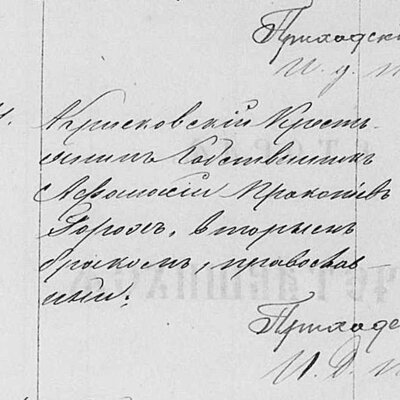 Приходскі
И. д. п
Арисковскій Кресть-
янинъ Собственникъ
Афанасій Прокопіевъ
Горохъ, вторымъ
бракомъ, православ
ный.
Приходс
И. д. п